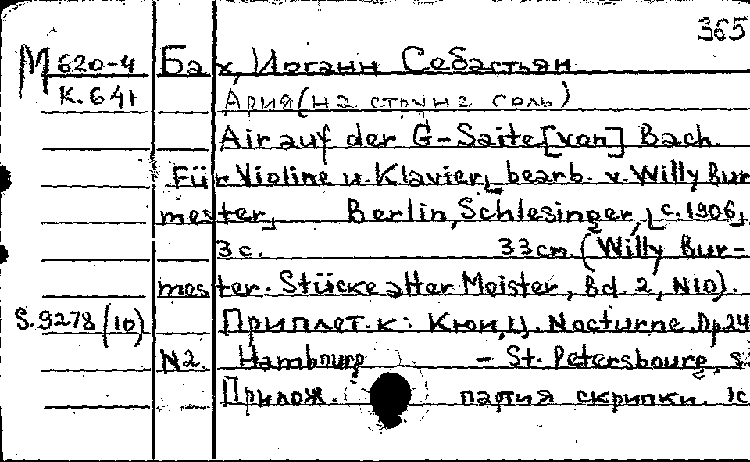 365
М 620-4 Бах, Иоганн Себастьян
К.641 Ария (на струне соль)
Air auf der G-Saite [von] Bach.
Für Violine u. Klavier, bearb. v. Willy Bur
mester, Berlin, Schlesinger, [c. 1906]
3 с. 33 cm. (Willy Bur-
mester. Stücke alter Meister, Bd. 2, N10).
S.9278 (10) Приплет. к: Кюи, Ц. Nocturne. Op.24
N2. Hambourg - St. Petersbourg, s.
Прилож. партия скрипки. 1с